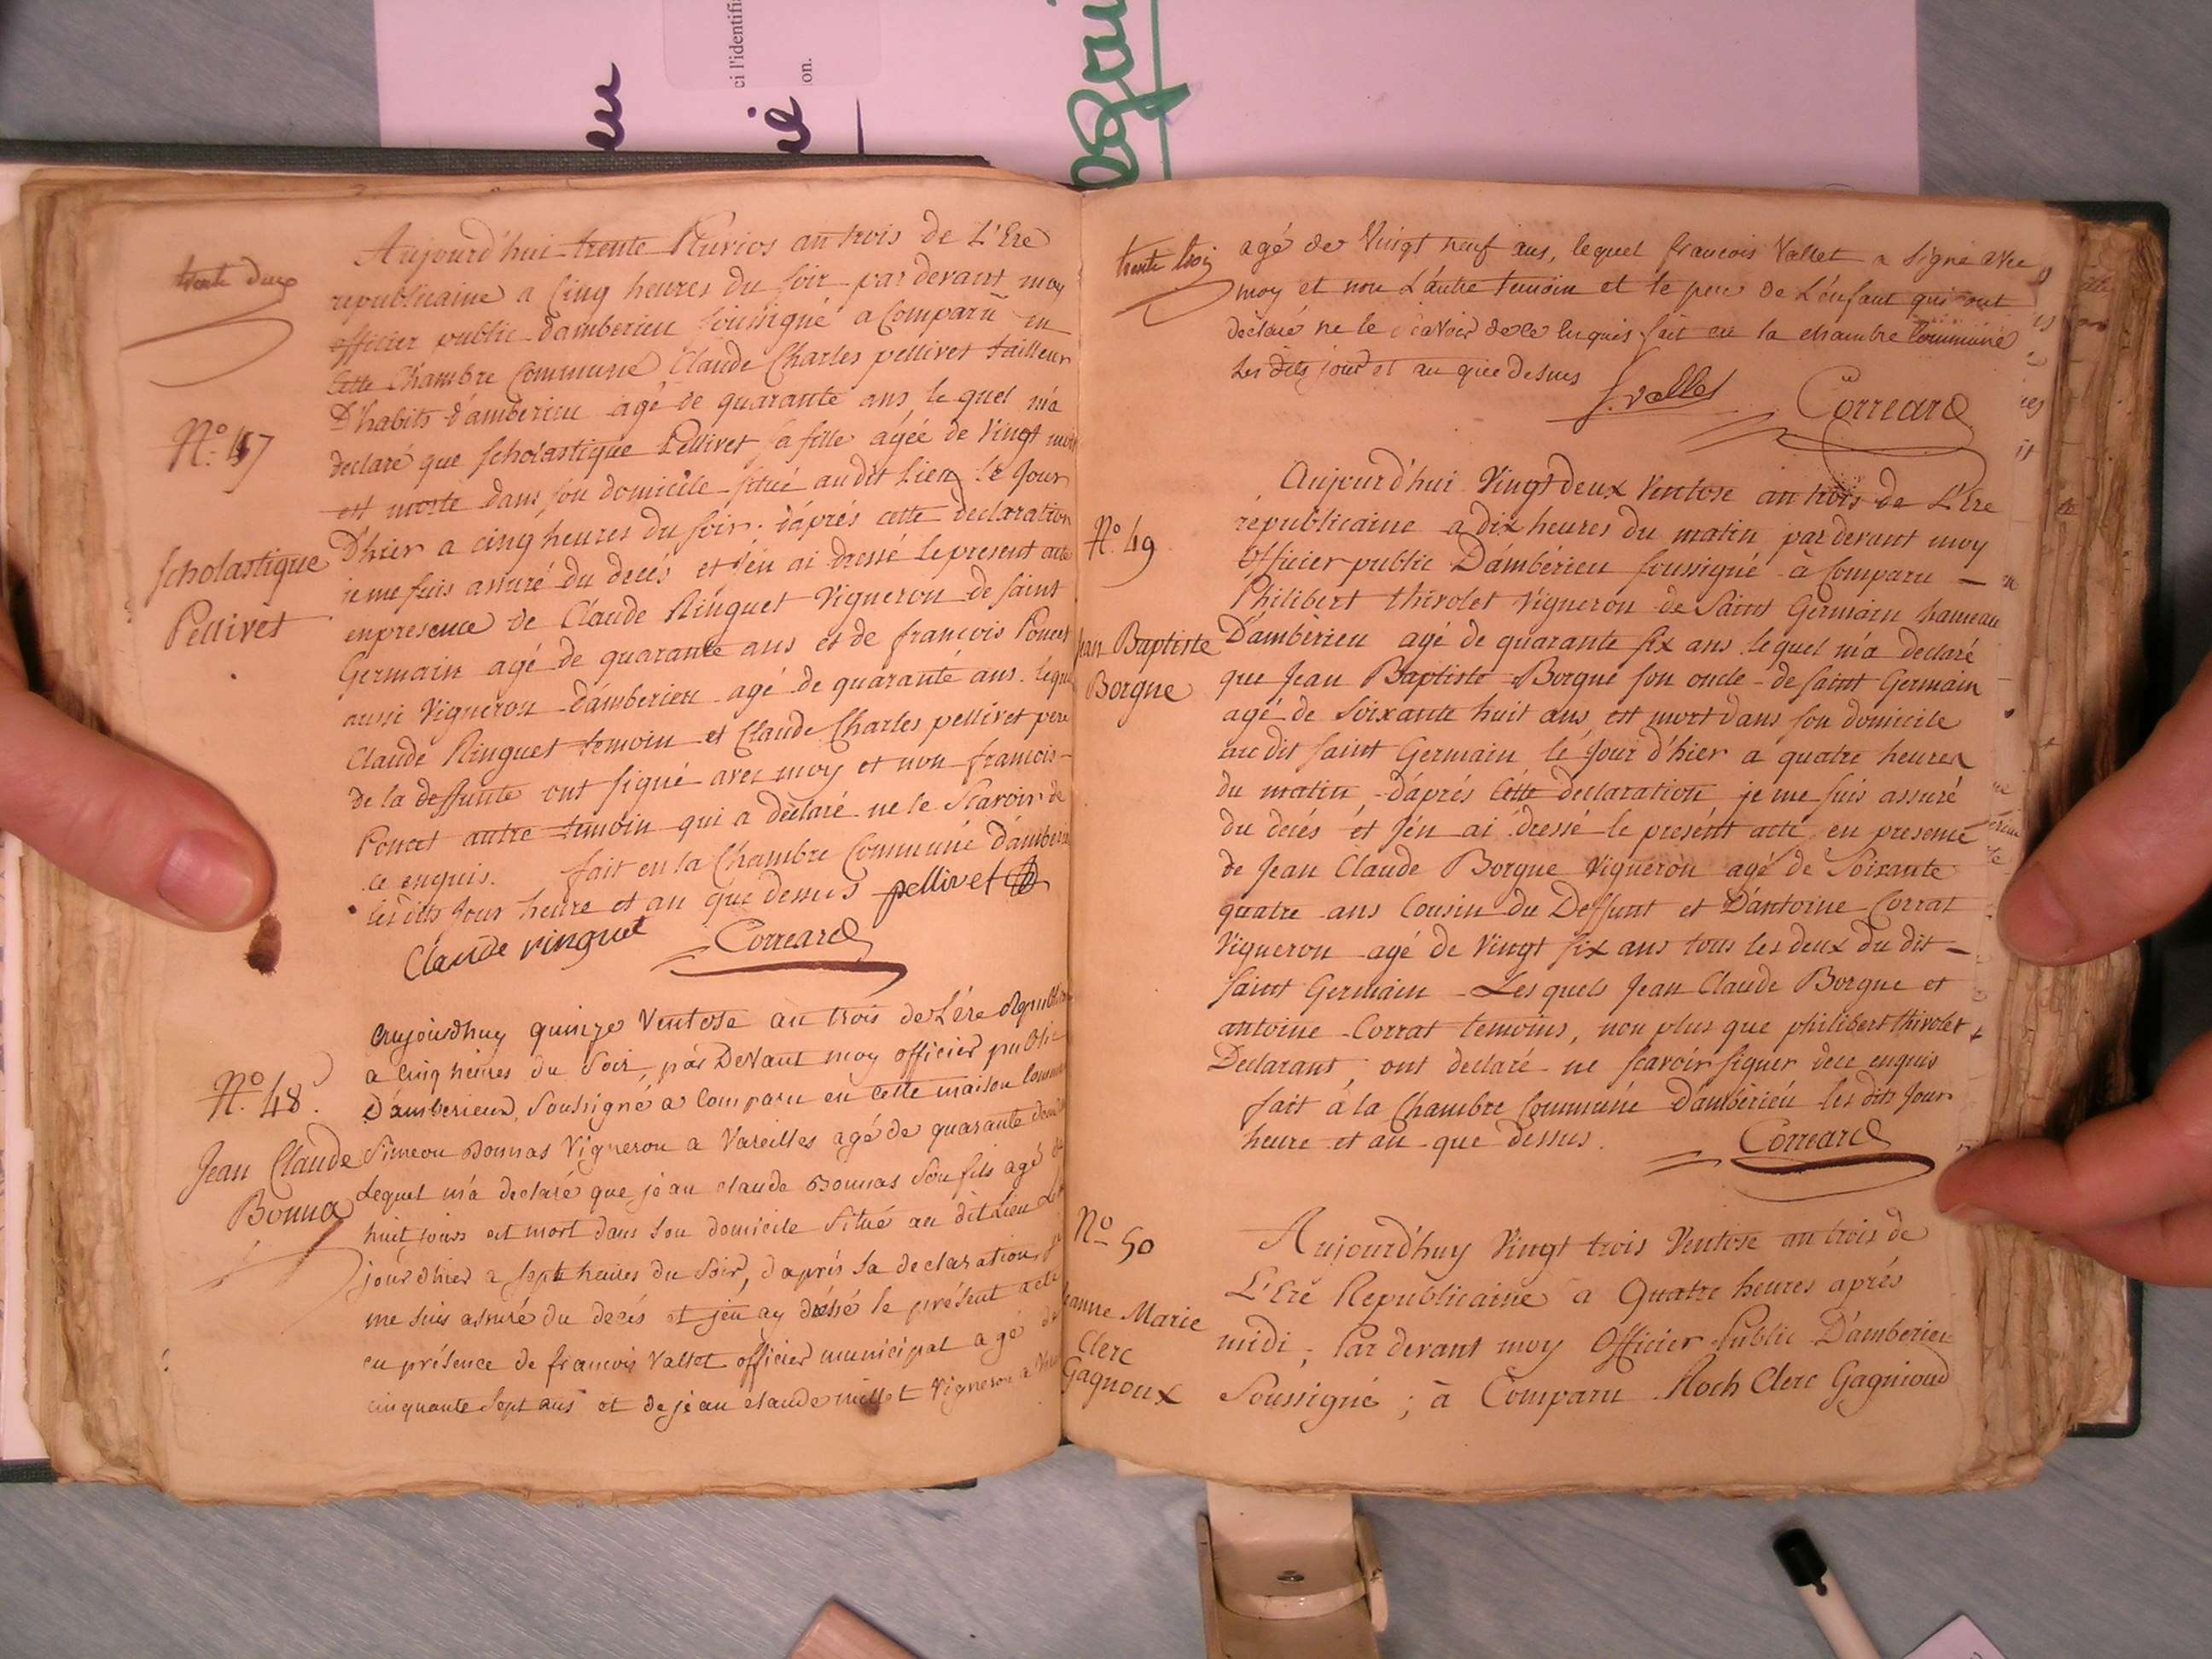 ci l'identifi
on.
trente deux
Aujourd'hui trente Pluvios an trois de L'Ere
republicaine a Cinq heures du soir par devant moy
officier public d'amberieu soussigné a Comparu en
cette Chambre Commune Claude Charles pellivet tailleur
D'habits d'amberieu agé de quarante ans le quel m'a
declaré que scholastique Pellivet sa fille agée de Vingt mois
est morte dans son domicile situé au dit Lieu le Jour
D'hier a cinq heures du soir. d'aprés cette declaration
je me suis assuré du decés et j'en ai dressé le present acte
en presence de Claude Ringuet Vigneron de saint
Germain agé de quarante ans et de francois Poncet
aussi Vigneron d'amberieu agé de quarante ans. lequel
Claude Ringuet temoin et Claude Charles pellivet pere
de la deffunte ont signé avec moy et non francois
Poncet autre temoin qui a déclaré ne le Scavoir de
ce enquis. fait en la Chambre Commune d'amberieu
les dits Jour heure et an que dessus pellivet
Claude ringuet Correard
N.º 47
scholastique
Pellivet
aujourdhuy quinze Ventose an trois de L'ére Republi
a Cinq heures du Soir, par Devant moy officier public
D'amberieux Soussigné a Comparu en cette maison Commu
Simeon Bonnas Vigneron a Vareilles agé de quarante
Lequel m'a declaré que jean claude Bonnas Son fils agé de
huit jours est mort dans Son domicile Situé au dit Lieu Le
jour d'hier a sept heures du Soir, d'aprés sa declaration, je
me suis assuré du decés et j'en ay dréssé le présent acte
en présence de francois Vallet officier municipal agé de
cinquante Sept ans et de jean claude millet Vigneron a
N.º 48.
Jean Claude
Bonna
trente trois
agé de Vingt neuf ans, lequel francois Vallet a Signé avec
moy et non L'autre temoin et le pere de L'enfant qui ont
déclaré ne le scavoir de ce enquis fait en la chambre Commune
Les dits jour et an que dessus
f. vallet Correard
N.º 49
Jean Baptiste
Borgne
Aujourd'hui Vingt deux Ventose an trois de L'Ere
republicaine a dix heures du matin par devant moy
Officier public D'ambérieu soussigné à Comparu —
Philibert thivolet Vigneron de Saint Germain hameau
D'ambérieu agé de quarante six ans lequel m'a declaré
que Jean Baptiste Borgne son oncle de saint Germain
agé de Soixante huit ans est mort dans son domicile
au dit saint Germain le Jour d'hier a quatre heures
du matin, d'aprés Cette declaration je me suis assuré
du decés et J'en ai dressé le présent acte en presence
de Jean Claude Borgne Vigneron agé de Soixante
quatre ans Cousin du Deffunt et D'antoine Corrat
Vigneron agé de Vingt six ans tous les deux du dit —
saint Germain Les quels Jean Claude Borgne et
antoine Corrat temoins, non plus que philibert thivolet
Declarant, ont declaré ne scavoir signer dece enquis
fait á la Chambre Commune D'ambérieu les dits Jour
heure et an que dessus. Correard
N.º 50
Jeanne Marie
Clerc
Gagnoux
Aujourd'huy Vingt trois Ventose an trois de
L'Ere Republicaine a Quatre heures aprés
midi ; Par devant moy Officier Public D'amberieu
Soussigné ; à Comparu Roch Clerc Gagnioud